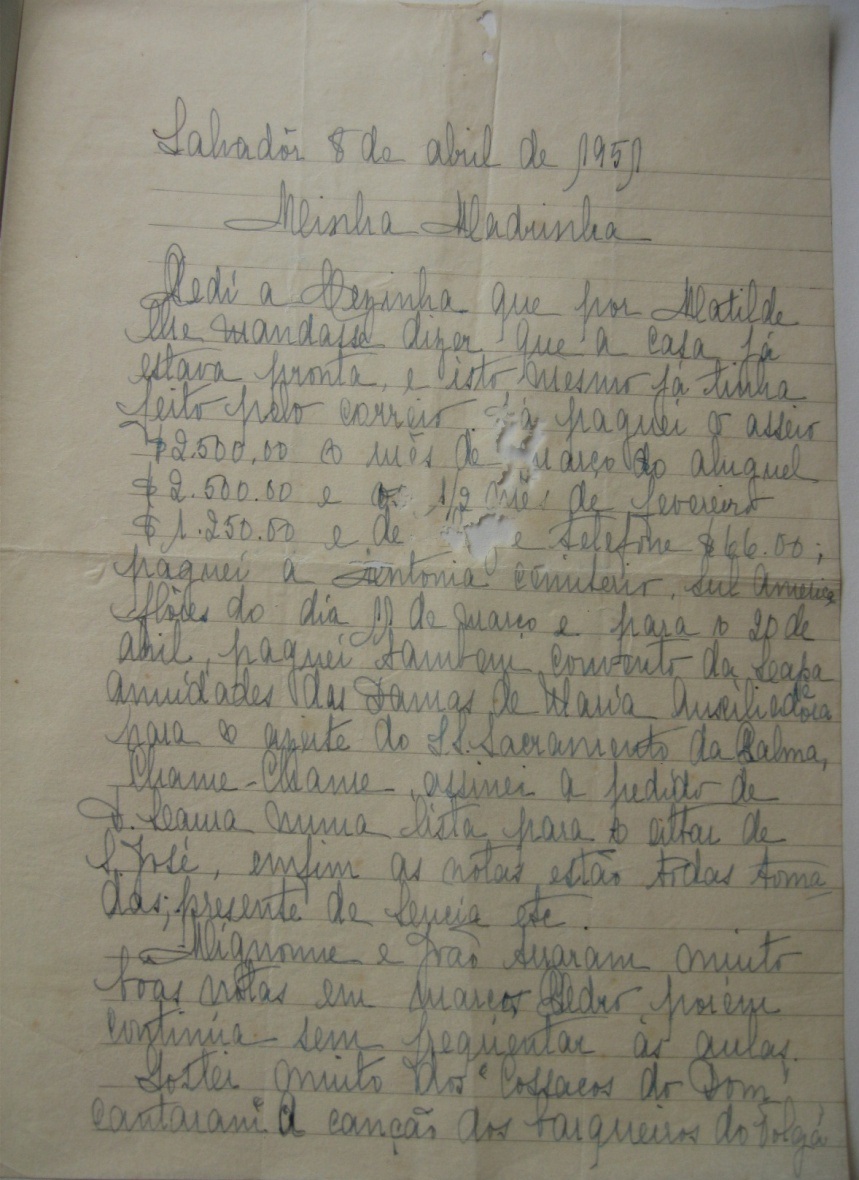 Salvadôr 8 de abril de 1951
Minha Madrinha
Pedi a Mezinha que por Matilde
lhe mandasse dizer que a casa já
estava pronta, e isto mesmo já tinha
feito pelo correio. Já paguei o asseio
$2.500,00 o mês de março do aluguel
$2.500.00 e 1/2 mês de fevereiro
$1.250.00 e de e telefone $66.00;
paguei a Antonia cemiterio, sul America
flôres do dia 11 de março e para o 20 de
abril, paguei tambem convento da Lapa
anuidades das Damas de Maria Auxiliadôra
para o azeite do S.S. Sacramento da Palma,
Chame-Chame, assinei a pedido de
D. Laura numa lista para o altar de
S. José, emfim as nótas estão tôdas toma
das; presente de Lucia etc.
Mignonne e João tiraram muito
boas nótas em março, Pedro porém
continúa sem freqüentar às aulas.
Gostei muito dos "Cossacos do Dom"
cantaram A canção dos barqueiros do Volga